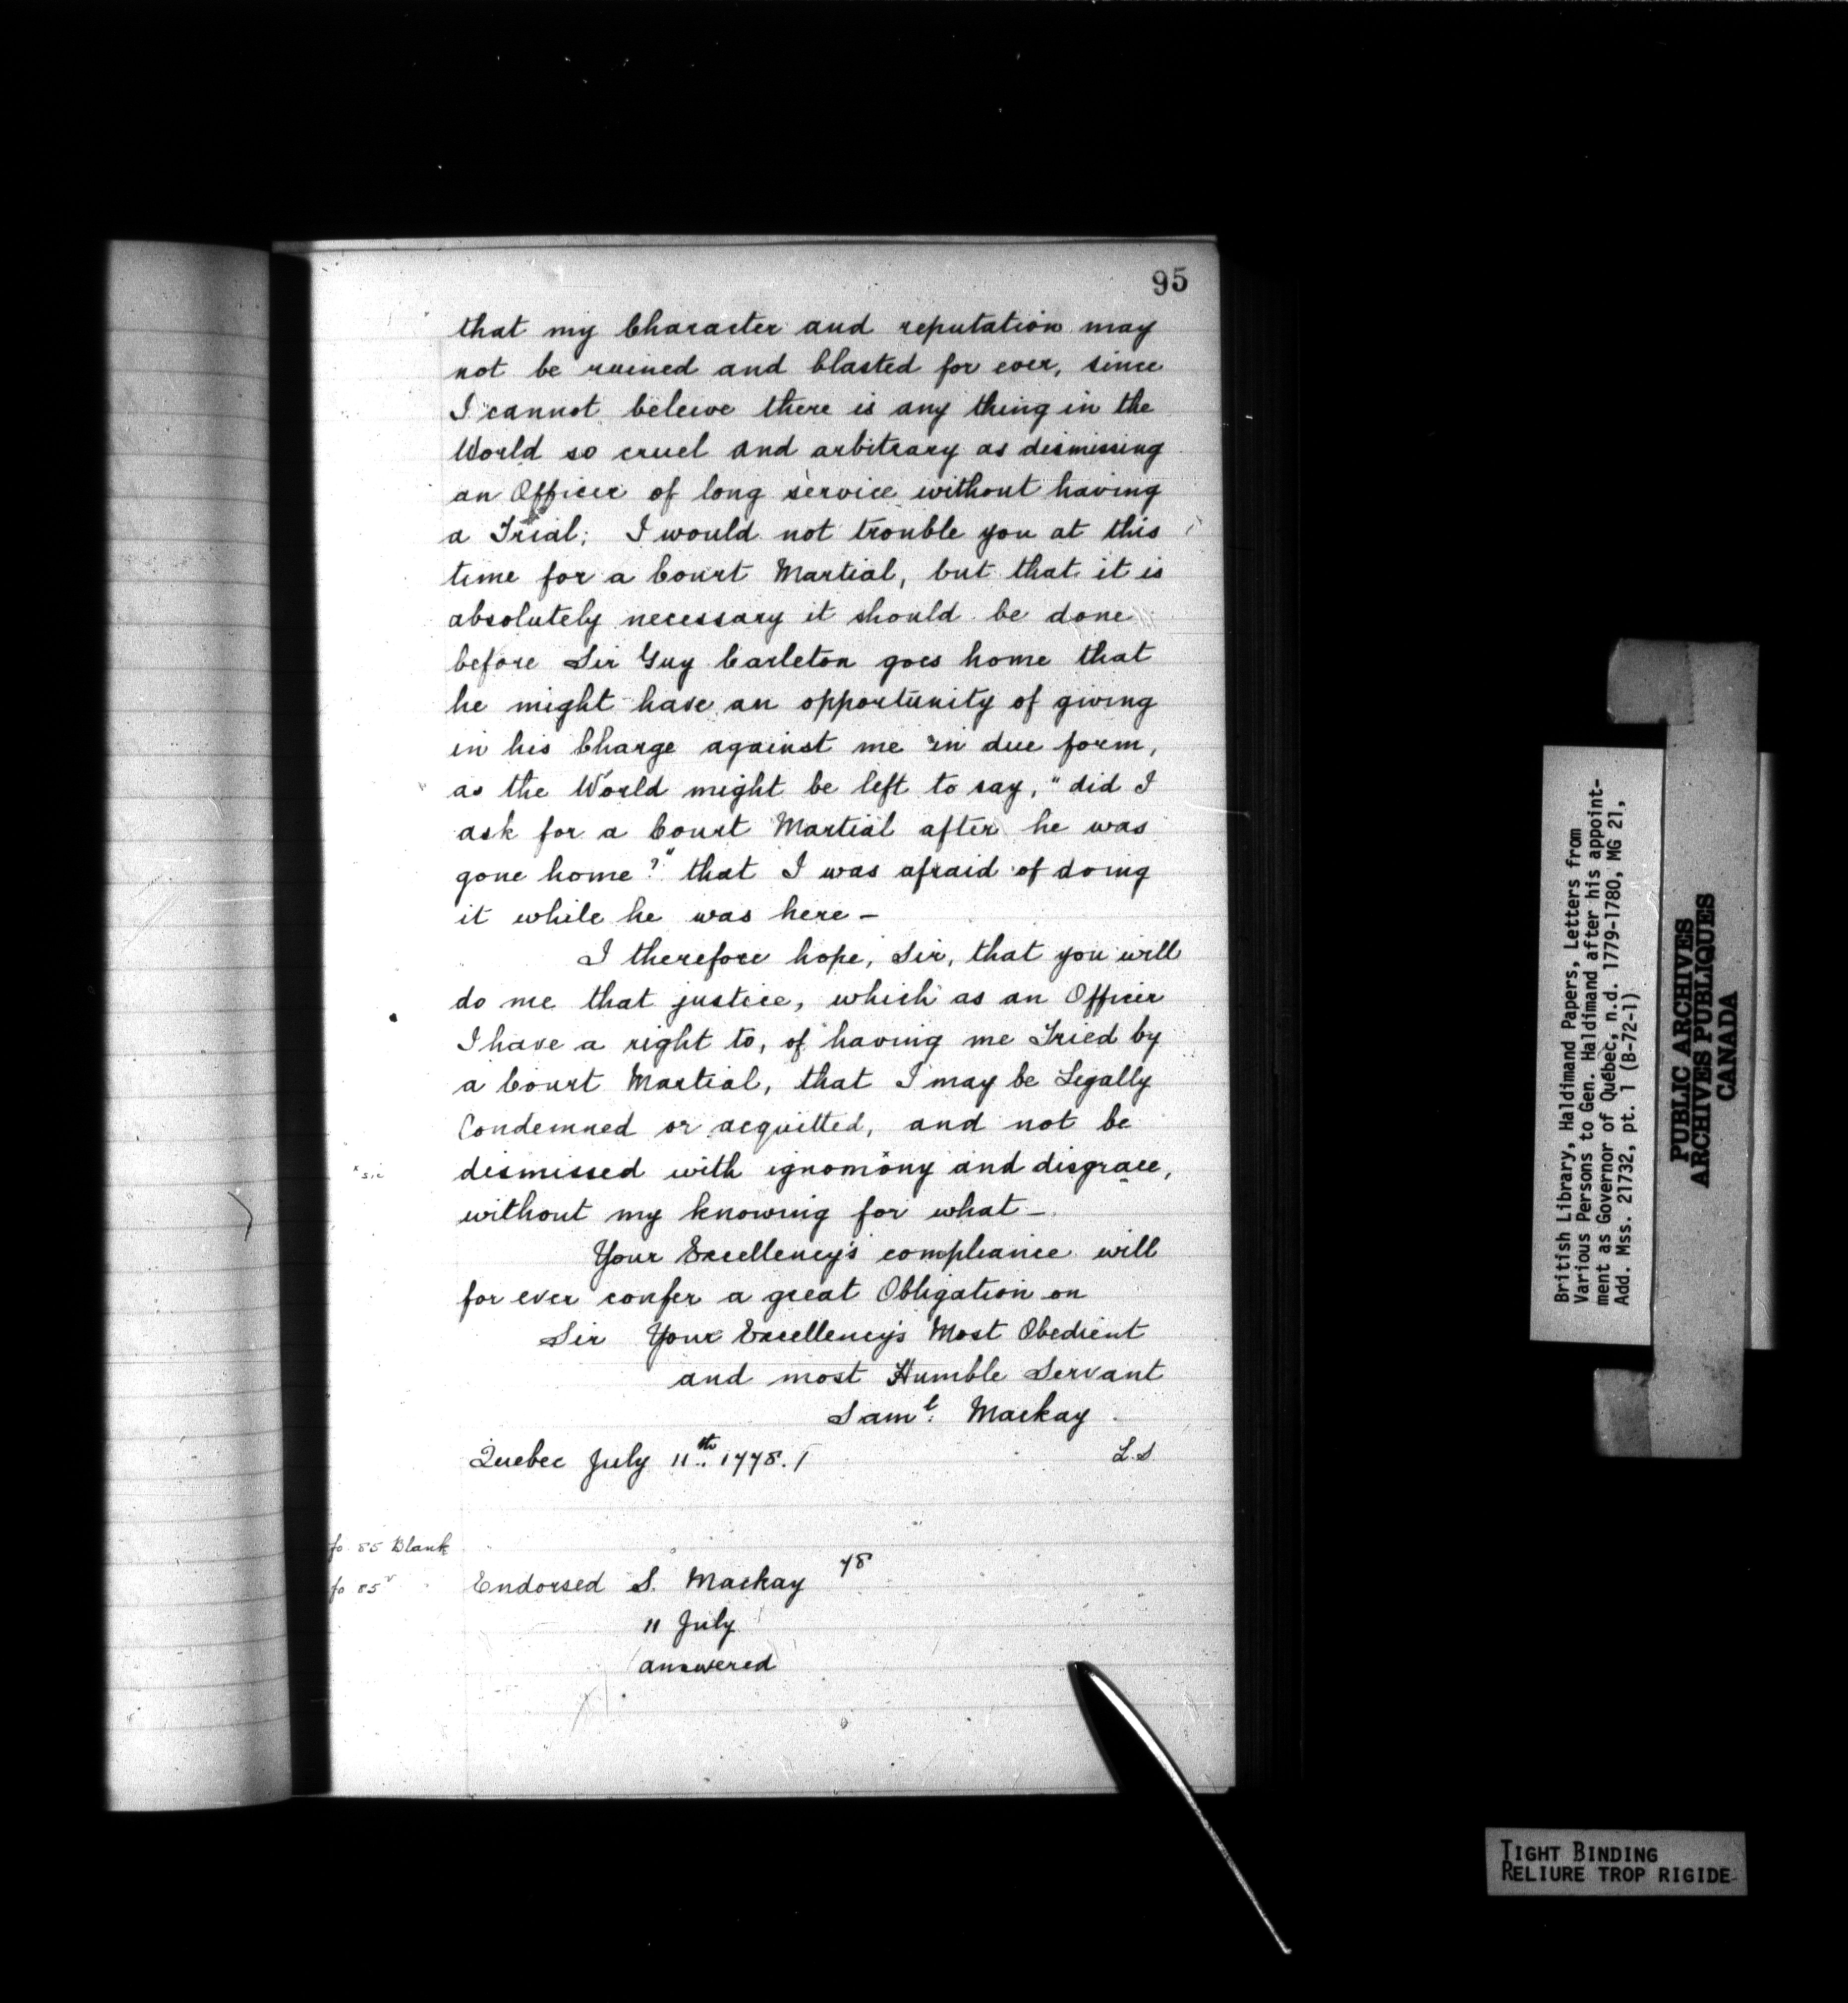 95
that my Character and reputation may
not be ruined and blasted for ever, since
I cannot beleive there is any thing in the
World so cruel and arbitrary as dismissing
an Officer of long service without having
a Trial; I would not trouble you at this
time for a Court Martial, but that it is
absolutely necessary it should be done
before Sir Guy Carleton goes home that
he might have an opportunity of giving
in his Charge against me in due form,
as the World might be left to say, "did I
ask for a Court Martial after he was
gone home?" that I was afraid of doing
it while he was here —
I therefore hope, Sir, that you will
do me that justice, which as an Officer
I have a right to, of having me Tried by
a Court Martial, that I may be Legally
Condemned or acquitted, and not be
x sic
dismissed with ignomony and disgrace,
without my knowing for what —
Your Excellency's compliance will
for ever confer a great Obligation on
Sir Your Excellency's Most Obedient
and most Humble Servant
Saml. Mackay
Quebec July 11th. 1778.
L.S
fo 85 Blank
fo 85v
Endorsed S. Mackay 78
11 July
answered
British Library, Haldimand Papers, Letters from
Various Persons to Gen. Haldimand after his appoint-
ment as Governor of Québec, n.d. 1779-1780, MG 21,
Add. Mss. 21732, pt. 1 (B-72-1)
PUBLIC ARCHIVES
ARCHIVES PUBLIQUES
CANADA
TIGHT BINDING
RELIURE TROP RIGIDE